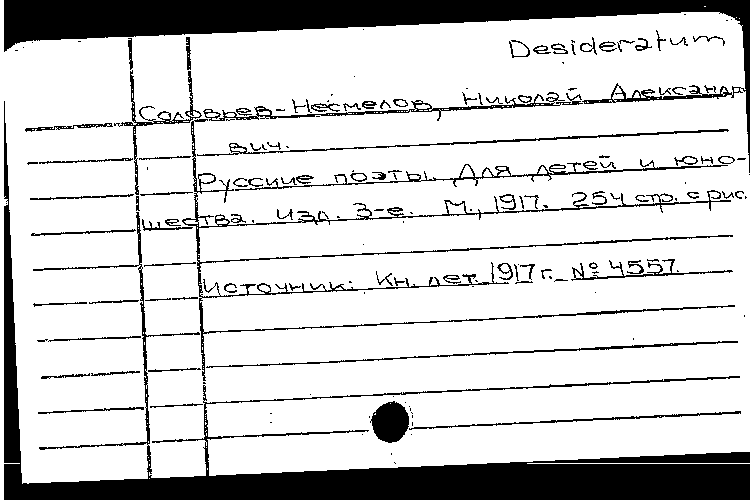 Desideratum
Соловьев-Несмелов, Николай Александро
вич.
Русские поэты. Для детей и юно-
шества. Изд. 3-е. М., 1917. 254 стр. с рис.
Источник: Кн. лет. 1917 г. № 4557.